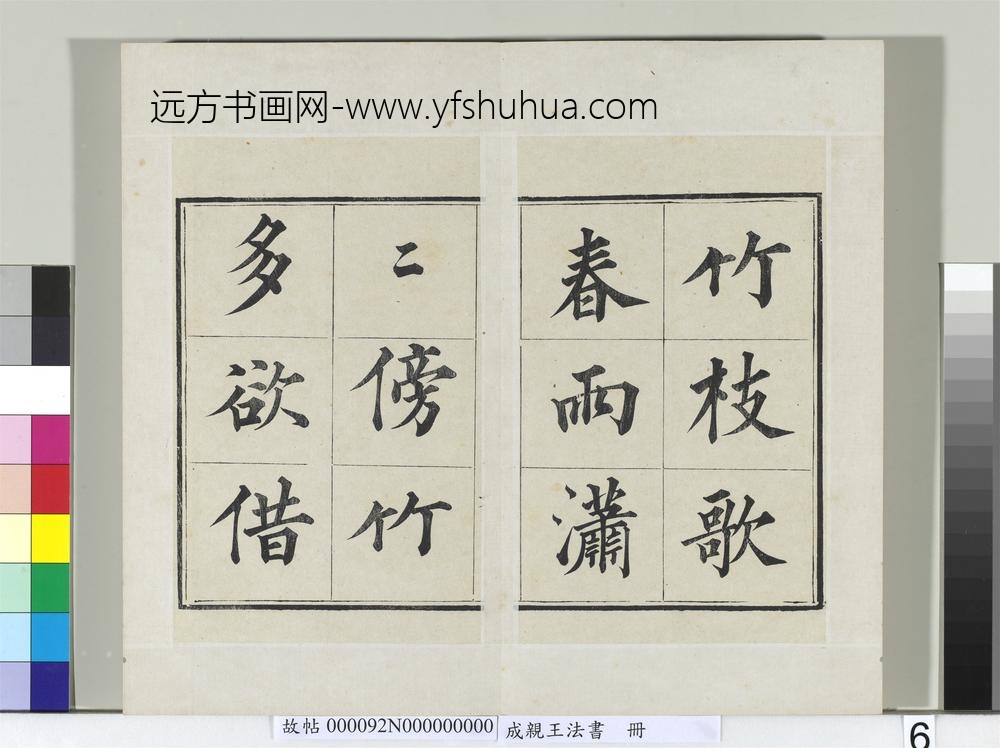 远方书画网-www.yfshuhua.com
竹枝歌
春雨瀟
二傍竹
多欲借
故帖 000092N000000000 成親王法書 冊
6